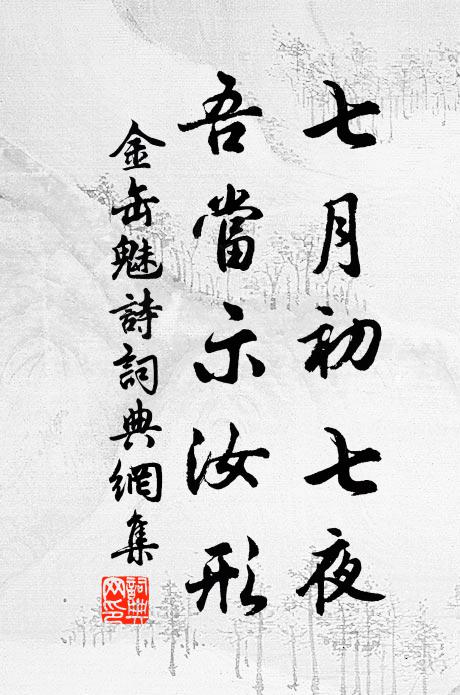 七月初七夜
吾當示汝形
金缶魅詩詞典網集
詞典